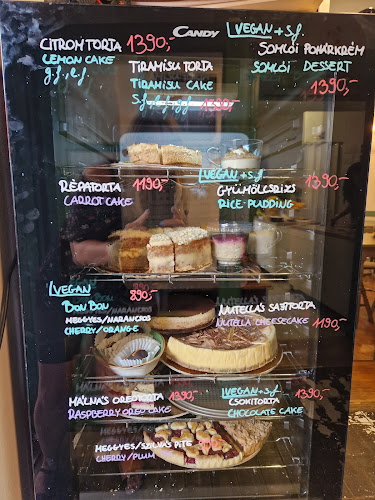 CANDY
CITROMTORTA 1390,-
LEMON CAKE
g.f., l.f.
TIRAMISU TORTA
TIRAMISU CAKE
S.f., l.f., g.f. 1390,-
VEGAN + s.f.
SOMLÓI POHÁRKRÉM
SOMLÓI DESSERT
1390,-
RÉPATORTA 1190,-
CARROT CAKE
VEGAN + s.f.
GYÜMÖLCSRIZS 1390,-
RICE PUDDING
VEGAN 890,-
BON BON
MEGGYES/NARANCSOS
CHERRY/ORANGE
NUTELLÁS SAJTTORTA
NUTELLA CHEESECAKE 1190,-
MÁLNÁS OREOTORTA 1390,-
RASPBERRY OREO CAKE
VEGAN + s.f. 1390,-
CSOKITORTA
CHOCOLATE CAKE
MEGGYES/SZILVÁS PITE
CHERRY/PLUM